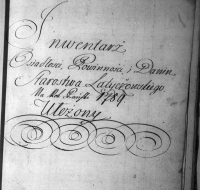 Inwentarz
Osiadłosci, Powinnosci, i Danin
Starostwa Latyczowskiego
Na Rok 1789
Ułożony